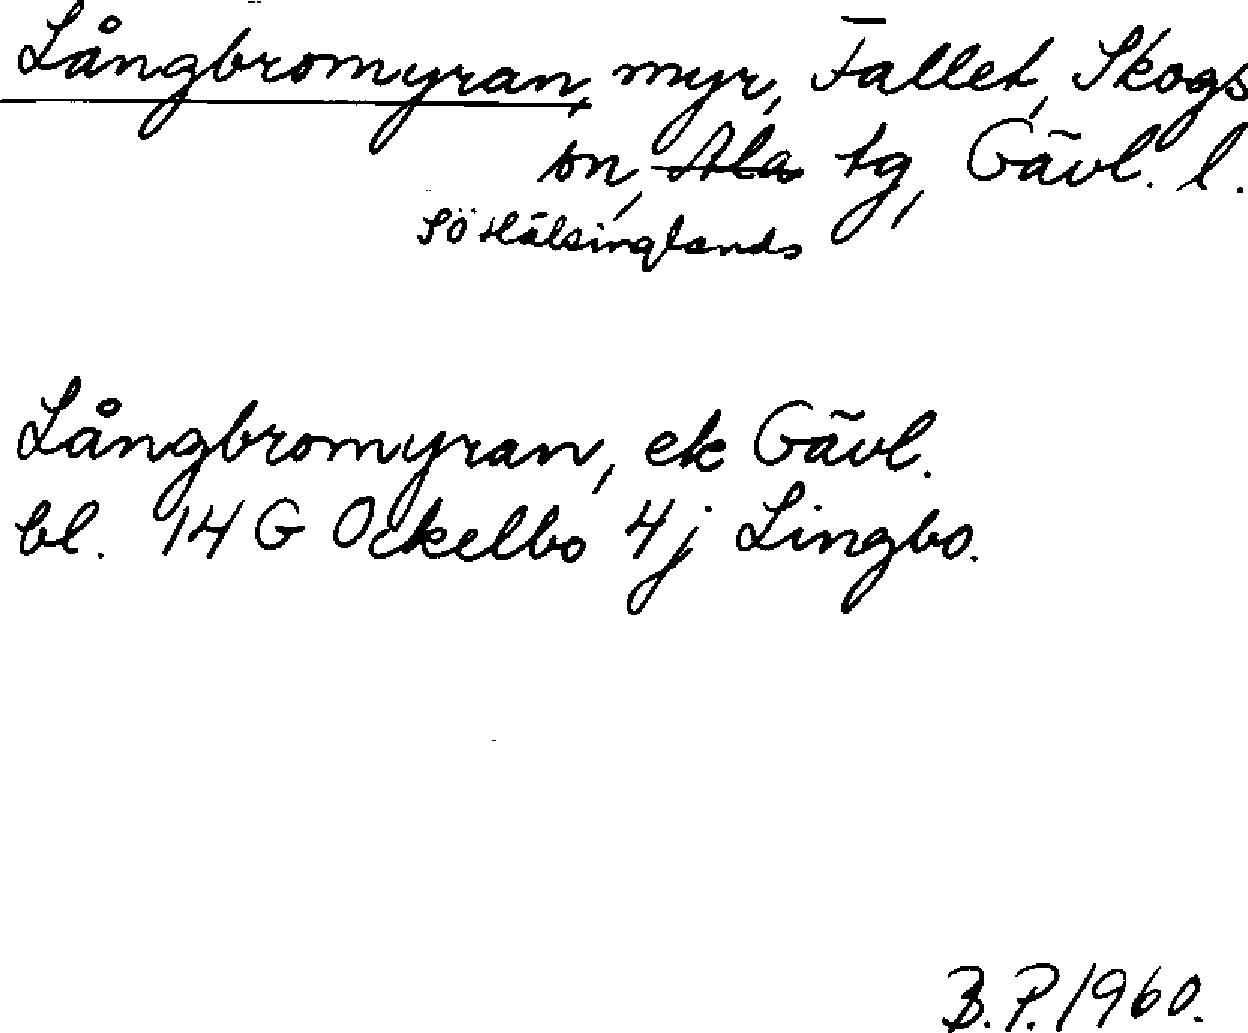 Långbromyran, myr, Fallet, Skogs
sn, Ala tg, Gävl. l.
SÖ Hälsinglands
Långbromyran, ek Gävl.
bl. 14 G Ockelbo 4j Lingbo.
B.P. 1960.